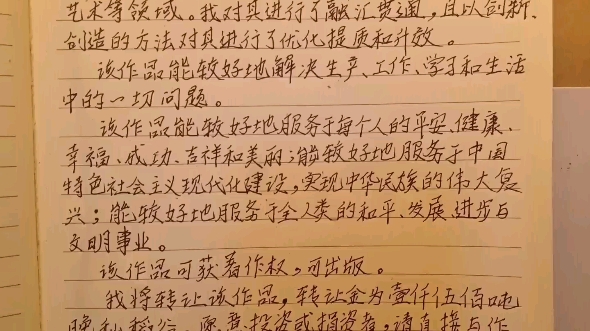 艺术等领域。我对其进行了融汇贯通，且以创新、
创造的方法对其进行了优化提质和升效。
该作品能较好地解决生产、工作、学习和生活
中的一切问题。
该作品能较好地服务于每个人的平安、健康、
幸福、成功、吉祥和美丽；能较好地服务于中国
特色社会主义现代化建设，实现中华民族的伟大复
兴；能较好地服务于全人类的和平、发展、进步与
文明事业。
该作品可获著作权，可出版。
我将转让该作品，转让金为壹仟伍佰吨
愿意投资或捐资者，请直接与作